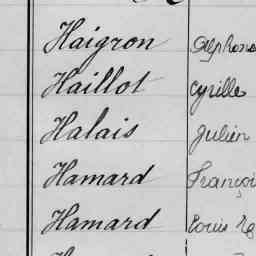 Haigron Alphons
Haillot Cyrille
Halais Julien
Hamard Françoi
Hamard Louis